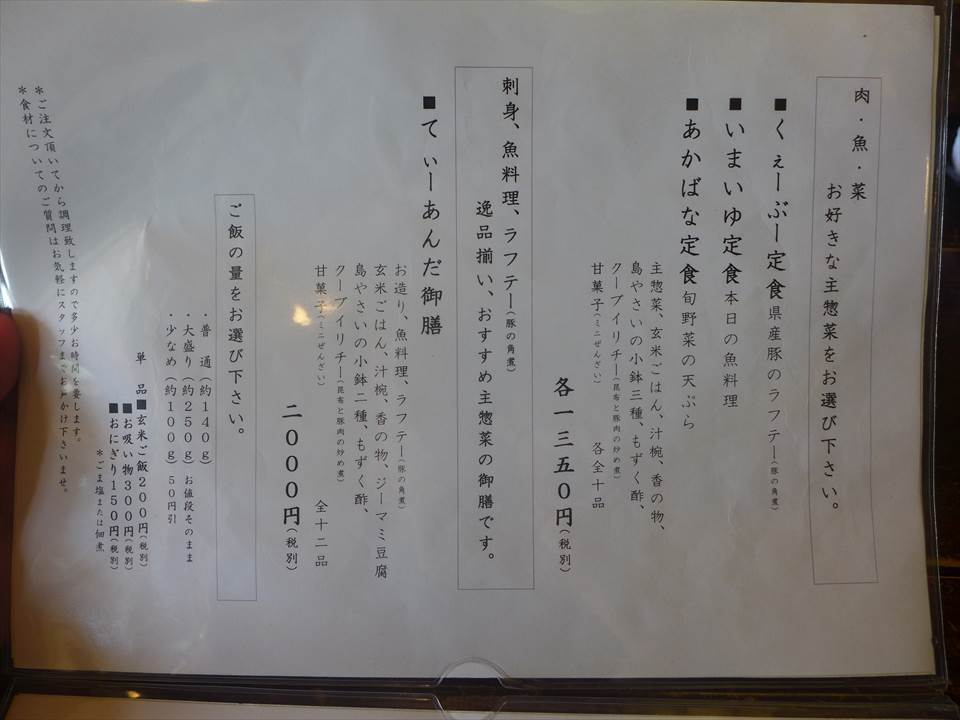 肉・魚・菜
お好きな主惣菜をお選び下さい。
■くぇーぶー定食 県産豚のラフテー(豚の角煮)
■いまいゆ定食 本日の魚料理
■あかばな定食 旬野菜の天ぷら
主惣菜、玄米ごはん、汁椀、香の物、
島やさいの小鉢三種、もずく酢、
クーブイリチー(昆布と豚肉の炒め煮)
甘菓子(ミニぜんざい) 各全十品
各一三五０円(税別)
刺身、魚料理、ラフテー(豚の角煮)
逸品揃い、おすすめ主惣菜の御膳です。
■てぃーあんだ御膳
お造り、魚料理、ラフテー(豚の角煮)
玄米ごはん、汁椀、香の物、ジーマミ豆腐
島やさいの小鉢二種、もずく酢、
クーブイリチー(昆布と豚肉の炒め煮)
甘菓子(ミニぜんざい) 全十二品
二０００円(税別)
ご飯の量をお選び下さい。
・普 通(約140g)
・大盛り(約250g) お値段そのまま
・少なめ(約100g) 50円引
単 品■玄米ご飯200円(税別)
■お吸い物300円(税別)
■おにぎり150円(税別)
*ごま塩または佃煮
*ご注文頂いてから調理致しますので多少お時間を要します。
*食材についてのご質問はお気軽にスタッフまでお声かけ下さいませ。